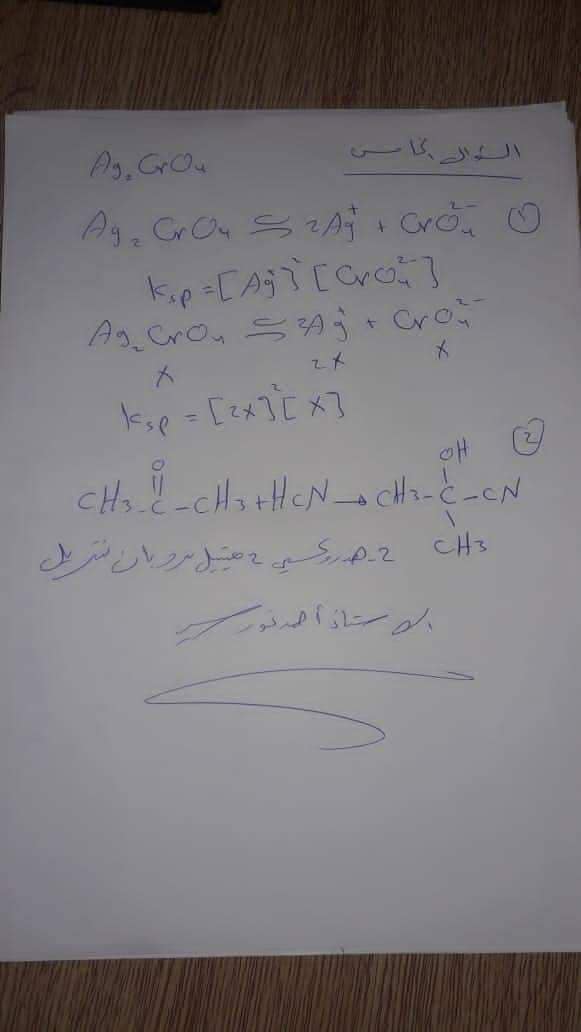 السؤال الخامس
Ag₂CrO₄
Ag₂CrO₄ ⇌ 2Ag⁺ + CrO₄²⁻ ①
Ksp = [Ag⁺]² [CrO₄²⁻]
Ag₂CrO₄ ⇌ 2Ag⁺ + CrO₄²⁻
x 2x x
Ksp = [2x]² [x]
②
O OH
CH3-C-CH3 + HCN → CH3-C-CN
CH3
2-هدروكسي 2 ميتيل بروبان نتريل
الاستاذ أحمد نور